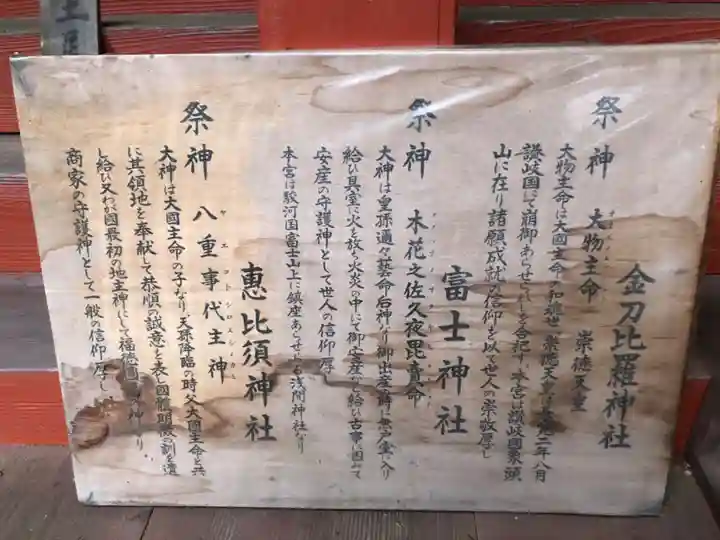 金刀比羅神社
祭神 大物主命 崇徳天皇
大物主命は大國主命の和魂也 崇徳天皇は二年八月
讃岐国にて崩御あらせられし
山に在り諸願成就の信仰を以て世人の崇敬厚し
富士神社
祭神 木花之佐久夜毘賣命
大神は皇孫邇々藝命の后神なり御出産の時に無戸室に入り
給ひ其室に火を放ち火炎の中にて御安産かな給ひ古事に因みて
安産の守護神として世人の信仰厚
本宮は駿河国富士山上に鎮座あらせらる浅間神社なり
恵比須神社
祭神 八重事代主神
ヤエコトシロヌシノカミ
大神は大國主命の子なり天孫降臨の時父大國主命と共
に其領地を奉献して恭順の誠意を表し國の訓を遺
し給ひ又わが國最初の地主神にして福徳神なり
商家の守護神として一般の信仰厚し